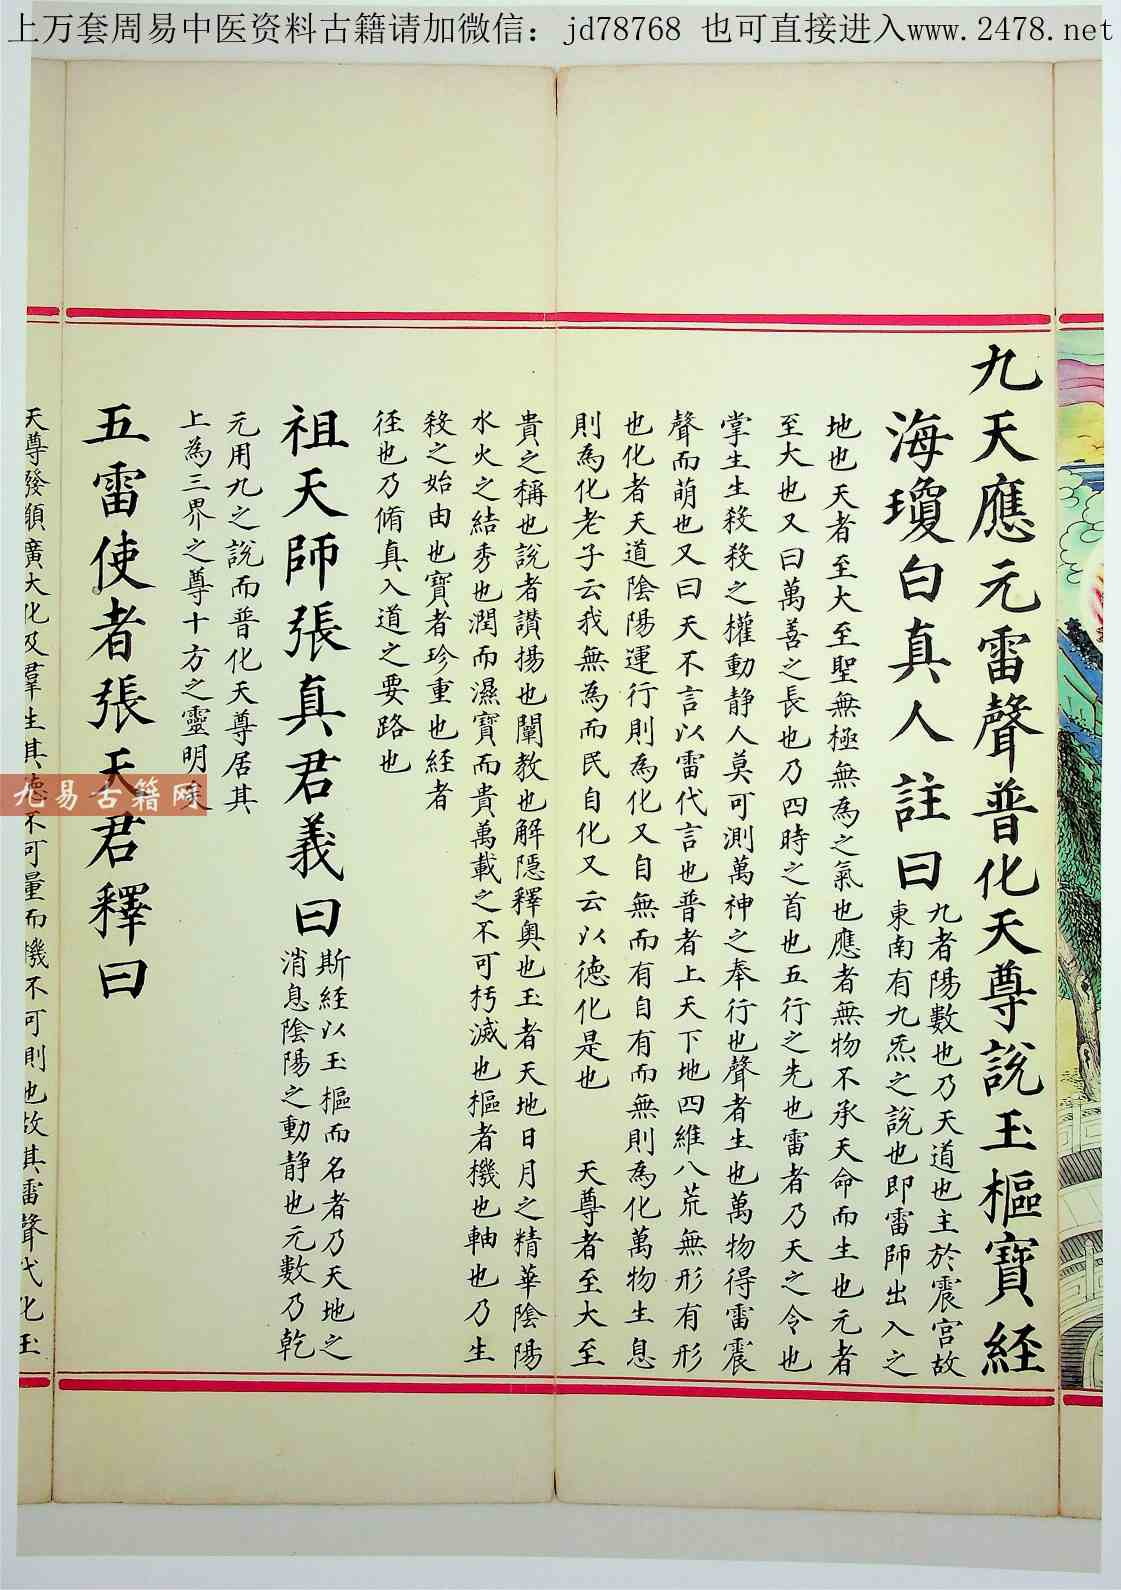 上万套周易中医资料古籍请加微信：jd78768 也可直接进入www.2478.net
九天應元雷聲普化天尊說玉樞寶経
海瓊白真人註曰
九者陽數也乃天道也主於震宮故
東南有九炁之說也即雷師出入之
地也天者至大至聖無極無為之氣也應者無物不承天命而生也元者
至大也又曰萬善之長也乃四時之首也五行之先也雷者乃天之令也
掌生生殺殺之權動静人莫可測萬神之奉行也聲者生也萬物得雷震
聲而萌也又曰天不言以雷代言也普者上天下地四維八荒無形有形
也化者天道陰陽運行則為化又自無而有自有而無則為化萬物生息
則為化老子云我無為而民自化又云以德化是也 天尊者至大至
貴之稱也說者讃揚也闡教也解隱釋奥也玉者天地日月之精華陰陽
水火之結秀也潤而濕寶而貴萬載之不可朽滅也樞者機也軸也乃生
殺之始由也寶者珍重也経者
径也乃脩真入道之要路也
祖天師張真君義曰
斯経以玉樞而名者乃天地之
消息陰陽之動静也元數乃乾
元用九之說而普化天尊居其
上為三界之尊十方之靈明矣
五雷使者張天君釋曰
天尊發願廣大化及羣生其德不可量而機不可則也故其雷聲代化玉
九易古籍网